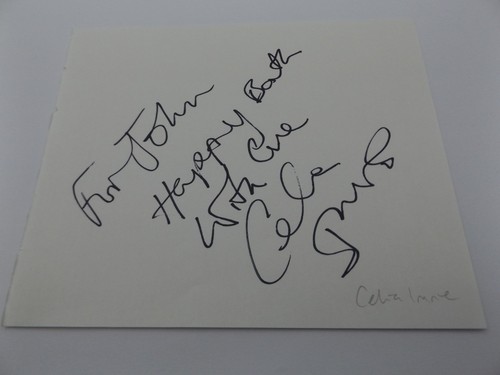 For John
Happy Bath
With Love
Celia
Imrie
Celia Imrie